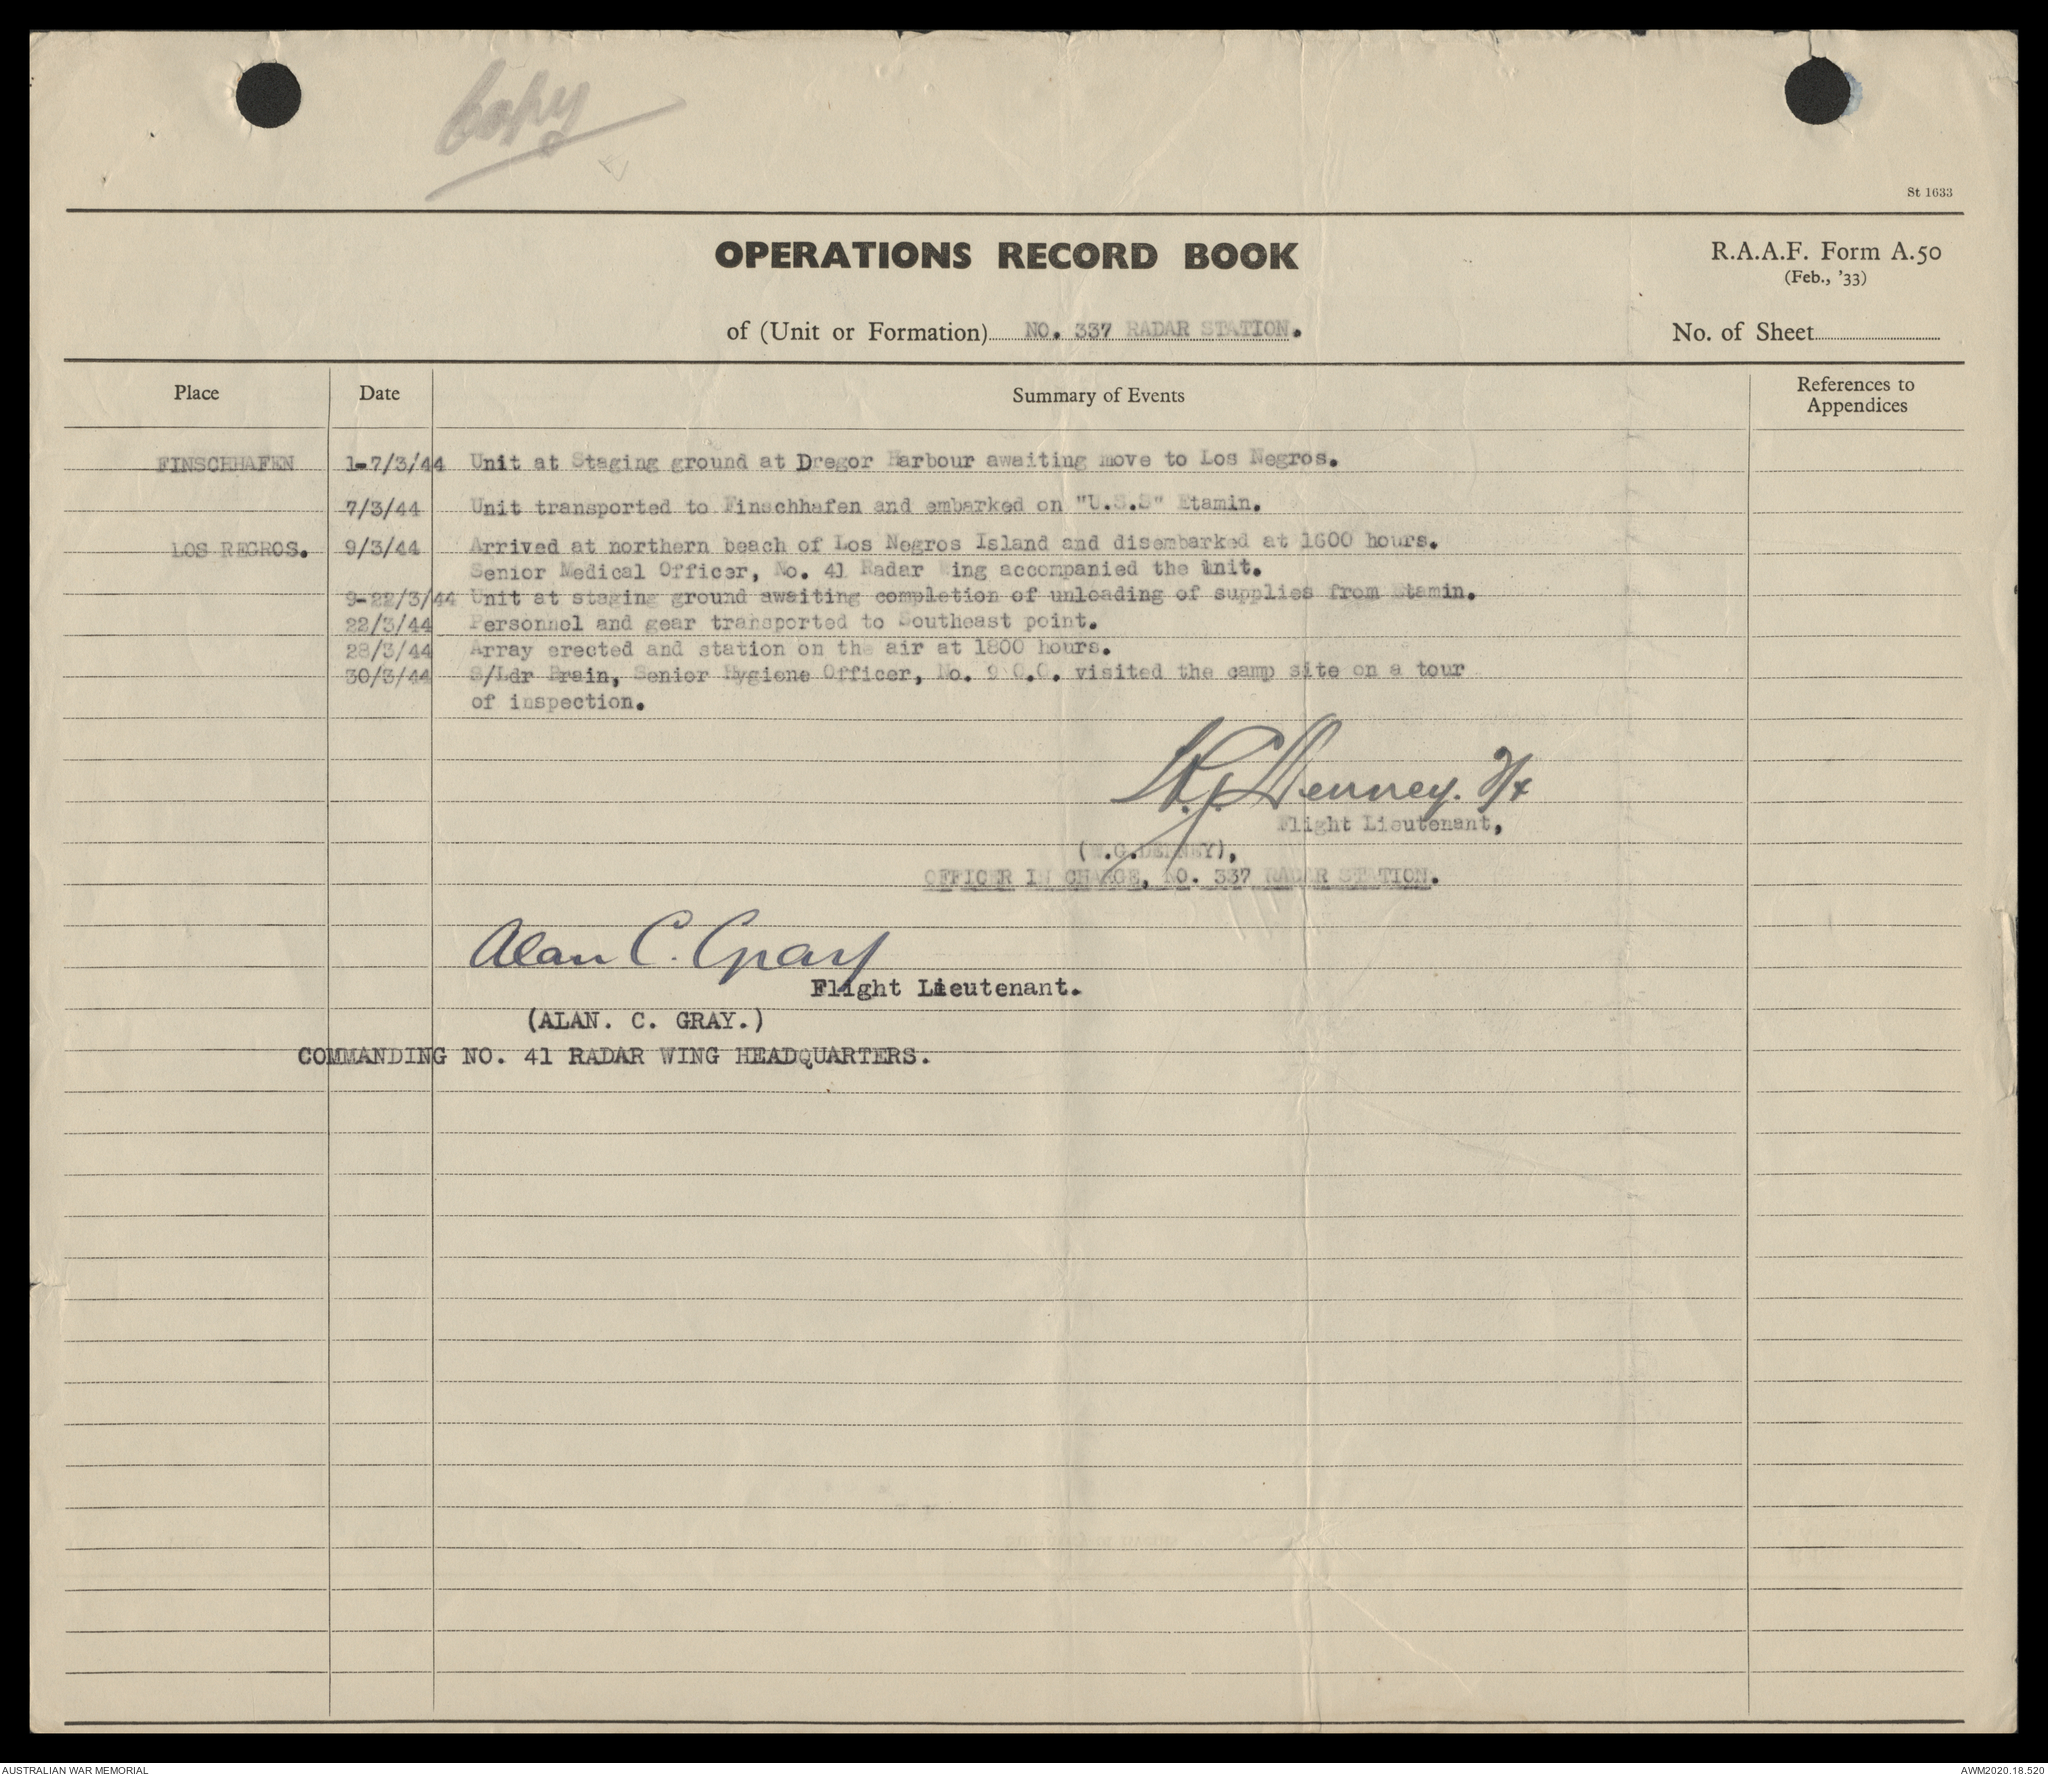 Copy
St 1633
OPERATIONS RECORD BOOK
R.A.A.F. Form A.50
(Feb., '33)
of (Unit or Formation) NO. 337 RADAR STATION.
No. of Sheet
Place Date Summary of Events References to Appendices
FINSCHHAFEN 1-7/3/44 Unit at Staging ground at Dregor Harbour awaiting move to Los Negros.
7/3/44 Unit transported to Finschhafen and embarked on "U.S.S" Etamin.
LOS REGROS. 9/3/44 Arrived at northern beach of Los Negros Island and disembarked at 1600 hours.
Senior Medical Officer, No. 41 Radar Wing accompanied the unit.
9-22/3/44 Unit at staging ground awaiting completion of unloading of supplies from Etamin.
22/3/44 Personnel and gear transported to Southeast point.
28/3/44 Array erected and station on the air at 1800 hours.
30/3/44 S/Ldr Brain, Senior Hygiene Officer, No. 9 O.C. visited the camp site on a tour
of inspection.
W.G. Denney. F/Lt
Flight Lieutenant,
(W.G.DENNEY),
OFFICER IN CHARGE, NO. 337 RADAR STATION.
Alan C. Gray
Flight Lieutenant.
(ALAN. C. GRAY.)
COMMANDING NO. 41 RADAR WING HEADQUARTERS.
AUSTRALIAN WAR MEMORIAL
AWM2020.18.520